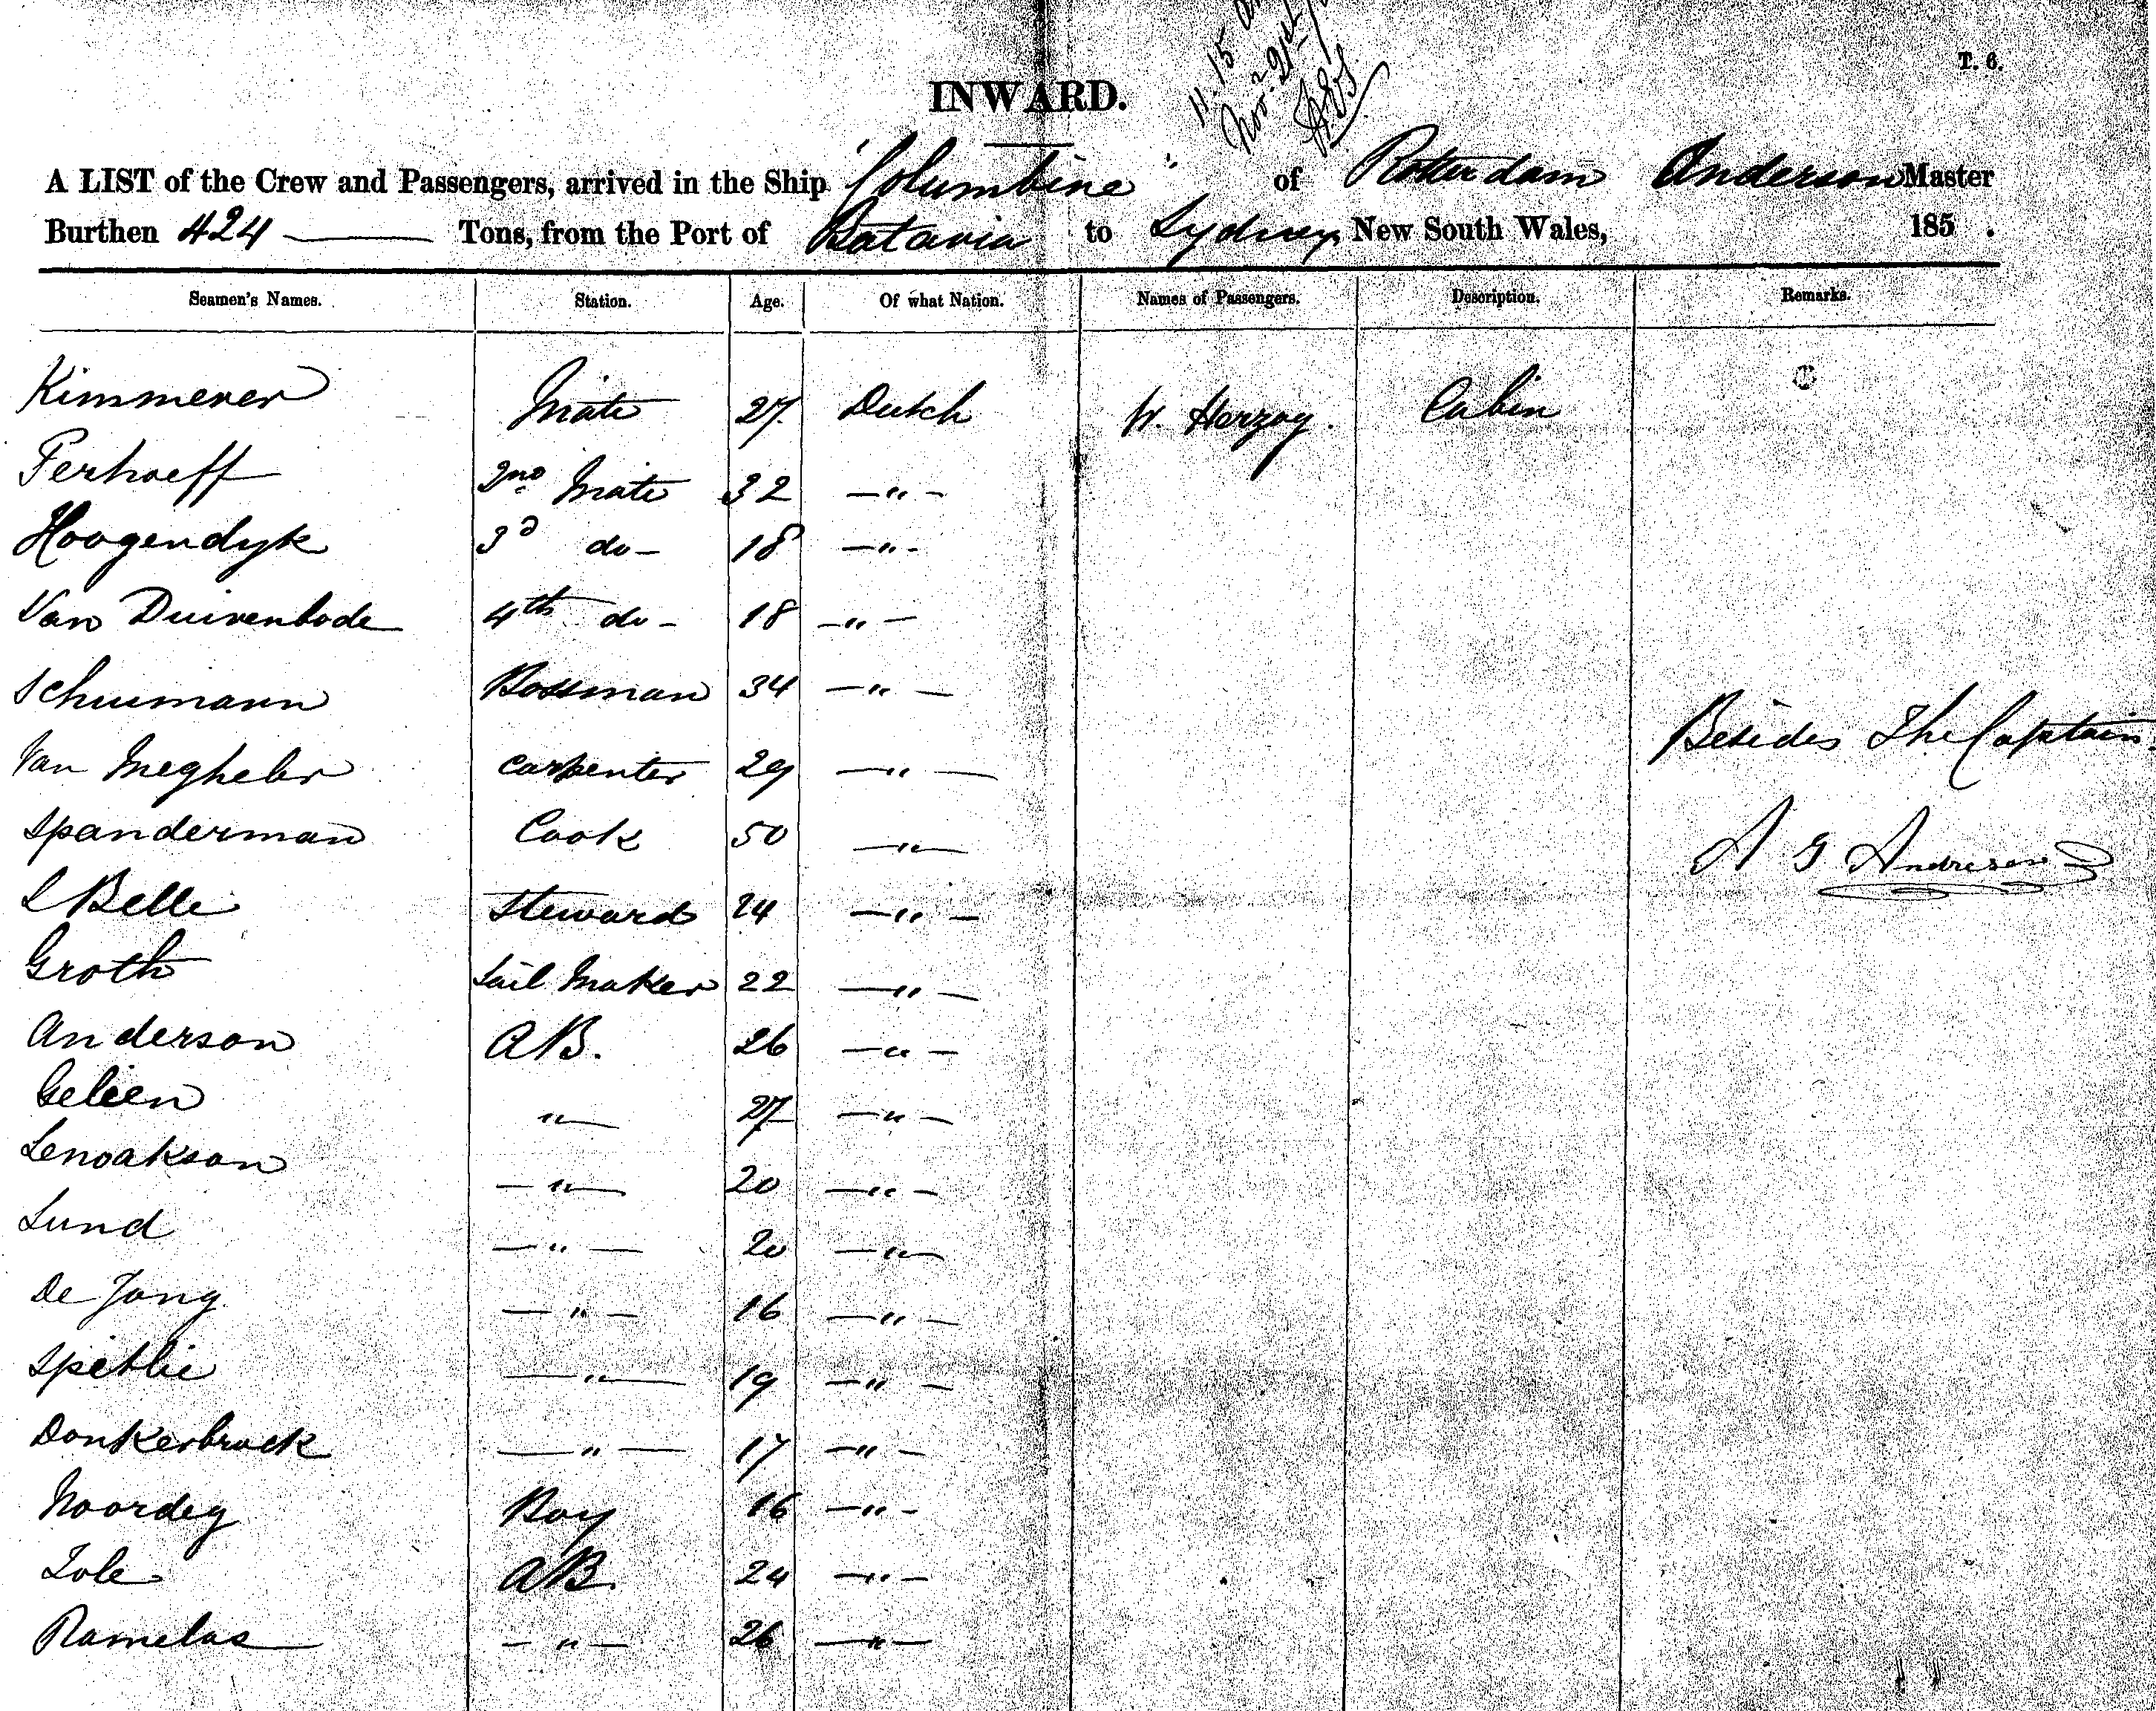 T. 6.
11.15
Nov. 21st
INWARD.
A LIST of the Crew and Passengers, arrived in the Ship "Columbine" of Rotterdam Anderson Master
Burthen 424 — Tons, from the Port of Batavia to Sydney New South Wales, 185 .
Seamen's Names. Station. Age. Of what Nation. Names of Passengers. Description. Remarks.
Kimmerer Mate 27 Dutch W. Herzog. Cabin
Ferhoeff 2nd Mate 32 —"—
Hoogendyk 3d do— 18 —"—
Van Duivenbode 4th do— 18 —"—
Schuumann Bossman 34 —"—
Besides The Captain
Van Megheler Carpenter 29 —"—
Spanderman Cook 50 —"—
A G Andresen
L Belle Steward 24 —"—
Groth Sail Maker 22 —"—
Anderson AB. 26 —"—
Geleen "— 27 —"—
Lenoakson —"— 20 —"—
Lund —"— 20 —"—
De Jong —"— 16 —"—
—"— 19 —"—
Donkerbrock —"— 17 —"—
Noordey Boy 16 —"—
Tole AB. 24 —"—
Ramelas —"— 26 —"—